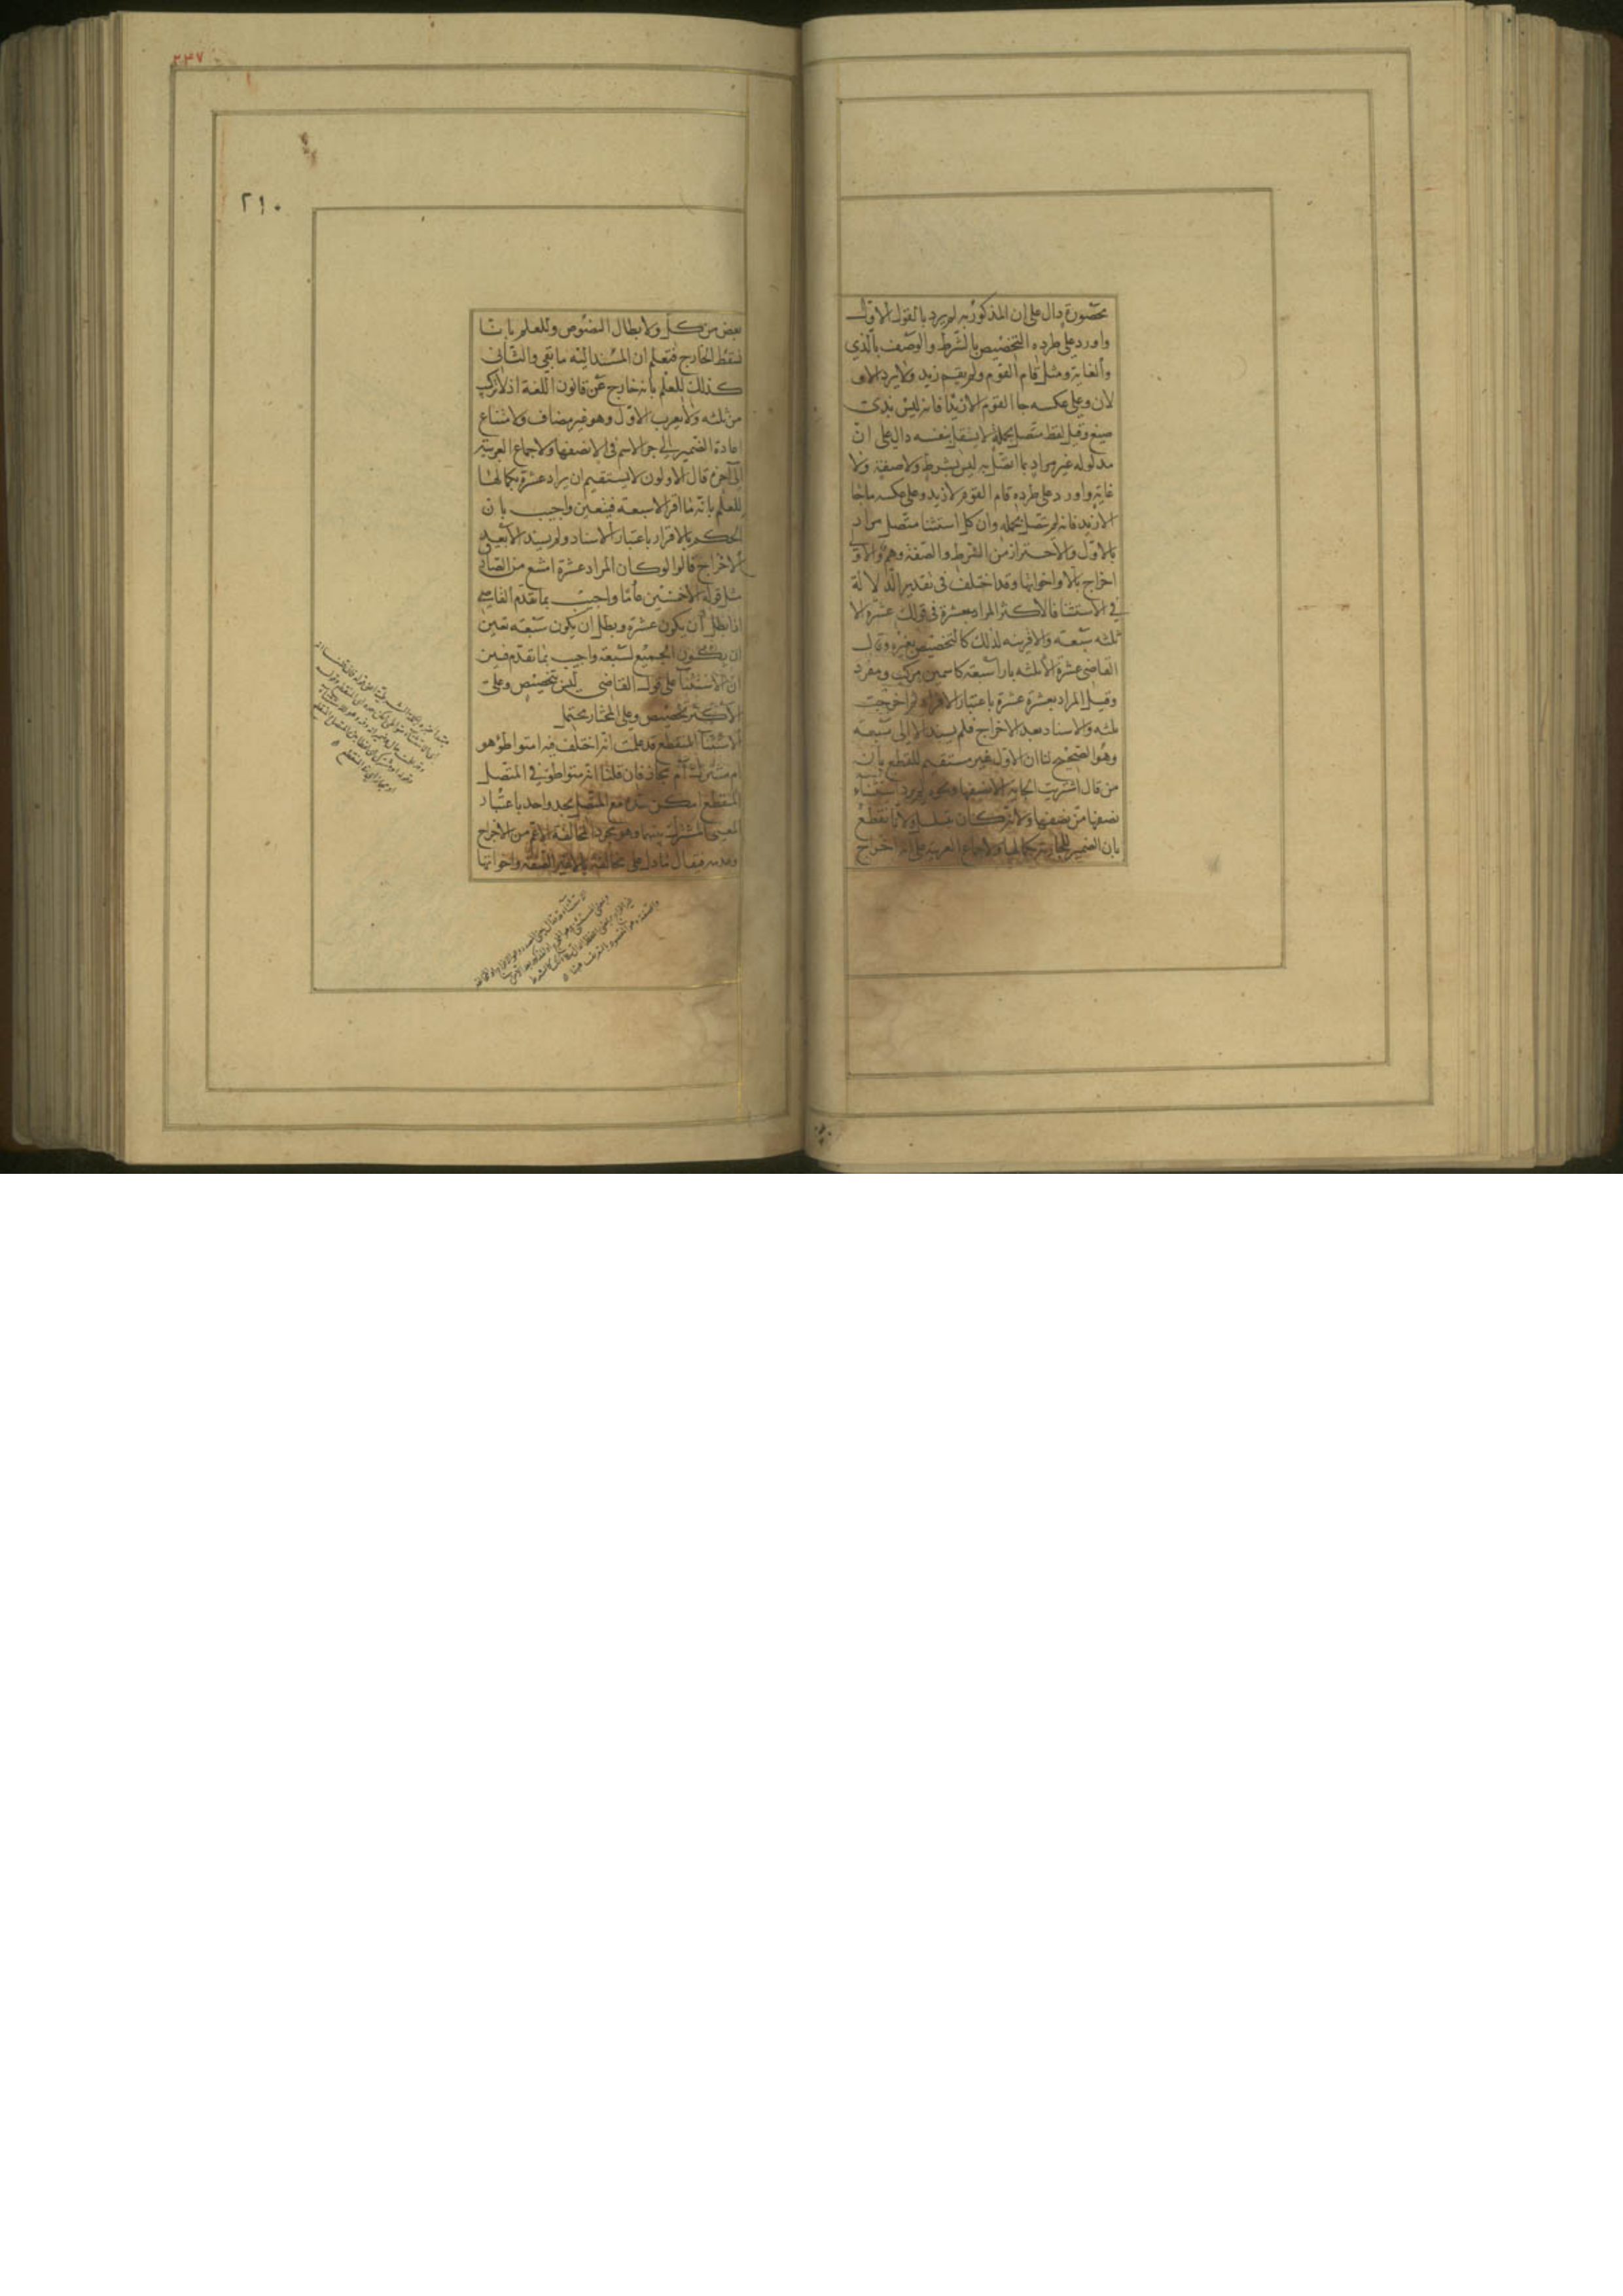 محصورة دال على ان المذكور به لم يرد بالقول الاول
واورد على طرده التخصيص بالشرط والوصف بالذي
والغاية ومثل قام القوم ولم يقم زيد ولا يرد الاو
لان وعلى عكسه جا القوم الا زيدا فانه ليس بذى
صيغ وقيل لفظ متصل بجملة لا يستقل بنفسه دال على ان
مدلوله غير مراد بما اتصل به ليس بشرط ولا صفة ولا
غاية واورد على طرده قام القوم لا زيد وعلى عكسه ما جا
الا زيد فانه لم يتصل بجمله وان كل استثنا متصل مراد
بالاول والاحتراز من الشرط والصفة وهم والاو
اخراج بالا واخواتها وقد اختلف فى تقدير الدلالة
في الاستثنا فالاكثر المراد بعشرة فى قولك عشرة الا
ثلثه سبعه والا قرينه لذلك كالتخصيص بغيره وقال
القاضى عشرة الا ثلثه بازا سبعة كاسمين مركب ومفرد
وقيل المراد بعشرة عشرة باعتبار الافراد ثم اخرجت
ثلثه والاسناد بعد الاخراج فلم يسند الا الى سبعه
وهو الصحيح لنا ان الاول غير مستقيم للقطع بان
من قال اشتريت الجاريه الا نصفها ونحوه لم يرد استثناء
نصفها من نصفها ولانه كان يتسلسل ولانا نقطع
بان الضمير للجارية بكمالها ولاجماع العربية على انه اخراج
٢٣٧
٢١٠
بعض من كل ولابطال النصوص وللعلم بانا
نسقط الخارج فنعلم ان المسند اليه ما بقي والثانى
كذلك للعلم بانه خارج عن قانون اللغة اذ لا تركب
من ثلثه ولا يعرب الاول وهو غير مضاف ولامتناع
اعادة الضمير الى جزء الاسم فى الا نصفها ولاجماع العربية
الى آخره قال الاولون لا يستقيم ان يراد عشرة بكمالها
للعلم بانه ما اقر الا بسبعة فيتعين واجيب بان
الحكم بالاقرار باعتبار الاسناد ولم يسند الا بعد
الاخراج قالوا لو كان المراد عشرة امتنع من الصادق
مثل قوله الا خمسين عاما واجيب بما تقدم القاضى
اذا بطل ان يكون عشرة وبطل ان يكون سبعه تعين
ان يكون الجميع لسبعة واجيب بما تقدم فيتبين
ان الاستثنا على قول القاضى ليس بتخصيص وعلى
الاكثر تخصيص وعلى المختار محتمل
الاستثنا المنقطع قد علمت انه اختلف فيه امتواطؤ هو
ام مشترك ام مجاز فان قلنا انه متواطؤ فى المتصل
المنقطع امكن حده مع المتصل بحد واحد باعتبار
المعنى المشترك بينهما وهو مجرد المخالفة الاعم من الاخراج
وعدمه فيقال ما دل على مخالفة بالا غير الصفة واخواتها